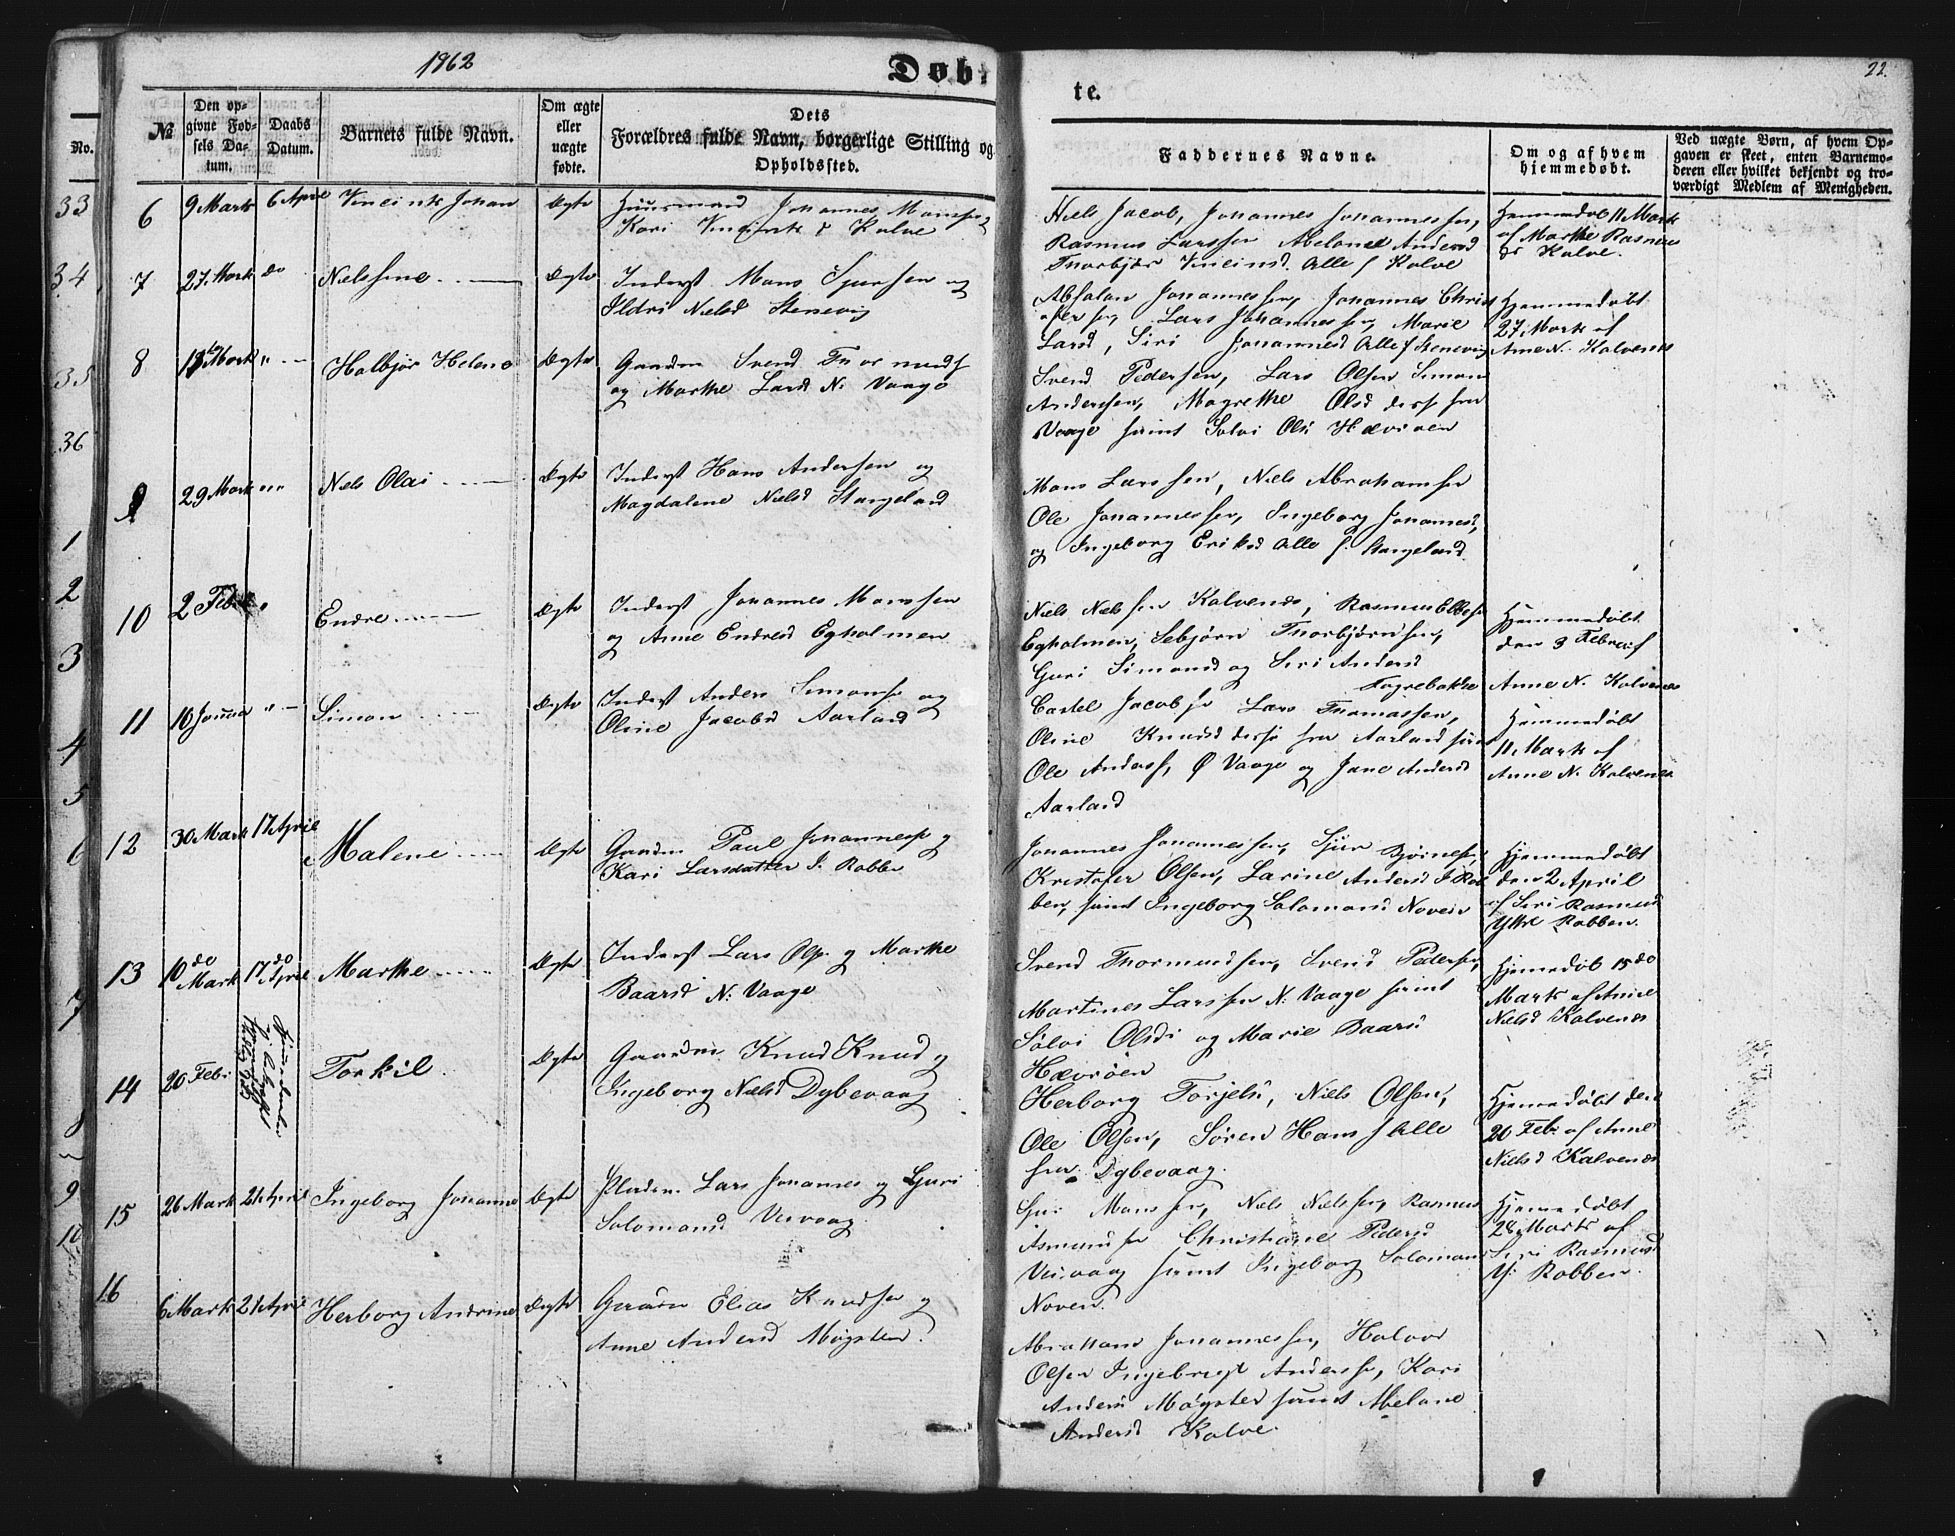 1862
Døb-
te.
22.
No.
33
34
35
36
1
2
3
4
5
6
7
8
9
10
№
Den op-
givne Fød-
sels Da-
tum.
Daabs
Datum.
Barnets fulde Navn.
Om ægte
eller
uægte
fødte.
Dets
Forældres fulde Navn, borgerlige Stilling og
Opholdssted.
Faddernes Navne.
Om og af hvem
hjemmedøbt.
Ved uægte Børn, af hvem Op-
gaven er skeet, enten Barnemo-
deren eller hvilket bekjendt og tro-
værdigt Medlem af Menigheden.
6 9 Marts 6 April Vincints Johan Ægte Huusmand Johannes Monsen
Kari Kalve
Niels Jacob, Johannes Johannessen,
Rasmus Larssen Abelone Andersd
Thorbjør Alle f Kalve
Hjemmedøb 11 Mark
af Marthe Rasmus
Kalve.
7 27 Mark do Nielsine Ægte Inderst Mons Sjursen og
Ildri Nielsd Stenevig
Absalon Johannessen, Johannes Chris
Lars Johannessen, Marie
Larsd, Siri Johannesd Alle f Stenevig
Hjemmedøbt
27 Mark af
Anne N. Kalvenes
8 Mark Halbjør Helene Ægte Gaardm Svend Thormods
og Marthe Larsd N. Vaage
Svend Pedersen, Lars Olsen Simon
Anderssen, Magrethe Olsd disse fra
Vaage samt Solvi Ols Hævrøen
9 29 Mark Niels Olai Ægte Inderst Hans Andersen og
Magdalene Nielsd Stangeland
Mons Larssen, Niels Abrahamsen
Ole Johannessen, Ingeborg Johannesd,
og Ingeborg Eriksd Alle f. Stangeland
10 2 Feb Endre Ægte Inderst Johannes Monssen
og Anne Endresd Egholmen
Niels Nielssen Kalvenes, Rasmus
Egholmen, Sebjørn Thorbjørnsen,
Guri Simonsd og Siri Andersd
Fagrebakke
Hjemmedøbt
den 3 Febr af
Anne N. Kalvenes
11 10 Janua Simon Ægte Inderst Anders Simons og
Oline Jacobsd Aarland
Castel Jacobs Lars Thomassen,
Oline Knudsd disse fra Aarland samt
Ole Anders, Ø Vaage og Jane Andersd
Aarland
Hjemmedøbt
11 Mark af
Anne N. Kalvenes
12 30 Mark 17 April Malene Ægte Gaardm Paul Johannes og
Kari Larsdatter I. Robben
Johannes Johannessen, Sjur Bjørnes,
Kristofer Olsen, Larine Andersd I Rob
ben, samt Ingeborg Salomonsd Noven
Hjemmedøbt
den 2 April
af Siri Rasmusd
Ytre Robben.
13 10 do Mark 17 do April Marthe Ægte Inderst Lars Ols og Marthe
Baarsd N. Vaage
Svend Thormundsen, Svend Pedersen,
Martines Larssen N. Vaage samt
Solvi Olsd og Marie Baars
Hævrøen
Hjemedøb 15 do
Marts af Anne
Nielsd Kalvenes
14 20 Feb. Torkil Ægte Gaardm Knud Knud og
Ingeborg Nielsd Dybevaag
Herborg Torjels, Niels Olsen,
Ole Olsen, Søren Hans Alle
fra Dybevaag.
Hjemmedøbt den
20 Feb. af Anne
Nielsd Kalvenes
15 26 Mark 21 April Ingeborg Johanne Ægte Pladsm. Lars Johannes og Guri
Solomonsd Vervaag
Sjur Monssen, Niels Nielssen, Rasmus
Asmunsen Christiane Pedersd
Vervaag samt Ingeborg Solomons
Noven.
Hjemmedøbt
28 Marts af
Siri Rasmusd
Y. Robben.
16 6 Mark 21 April Herborg Andrine Ægte Gaardm Elias Knudsen og
Anne Andersd Møgster.
Abraham Johannessen, Halvor
Olsen Ingebregt Anderssen, Kari
Anders Møgster samt Abelone
Andersd Kalve.